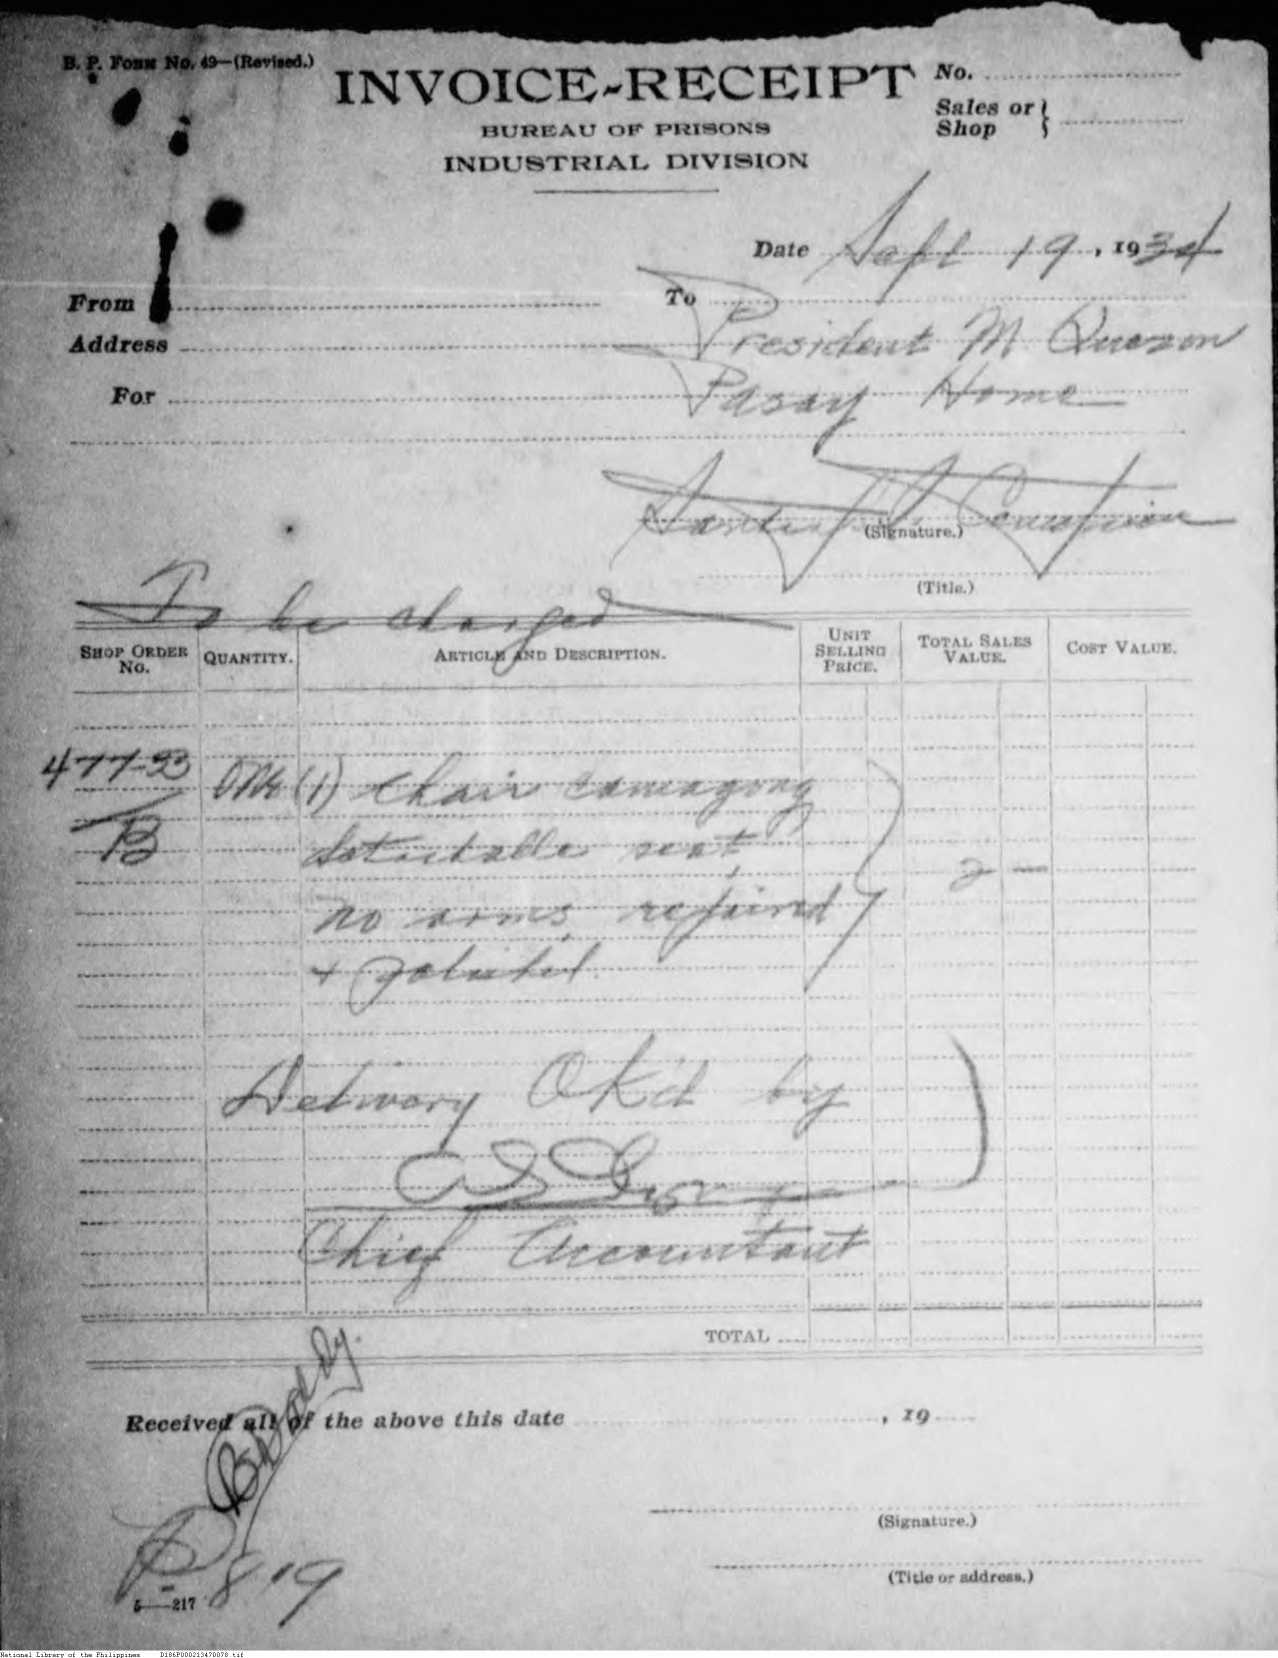 B. P. FORM No. 49—(Revised.)
INVOICE-RECEIPT
BUREAU OF PRISONS
INDUSTRIAL DIVISION
No.
Sales or
Shop
Date Sept 19, 1934
From
To
Address
President M. Quezon
For
Pasay Home
(Signature.)
(Title.)
To be charged
SHOP ORDER No. QUANTITY. ARTICLE AND DESCRIPTION. UNIT SELLING PRICE. TOTAL SALES VALUE. COST VALUE.
477-93 One (1) chair camagong
B detachable seat,
2 —
no arms, repaired
+ polished.
Delivery OK'd by
Chief Accountant
TOTAL
Received all of the above this date , 19
(Signature.)
(Title or address.)
8-19
5—217
National Library of the Philippines D186P000213470078.tif